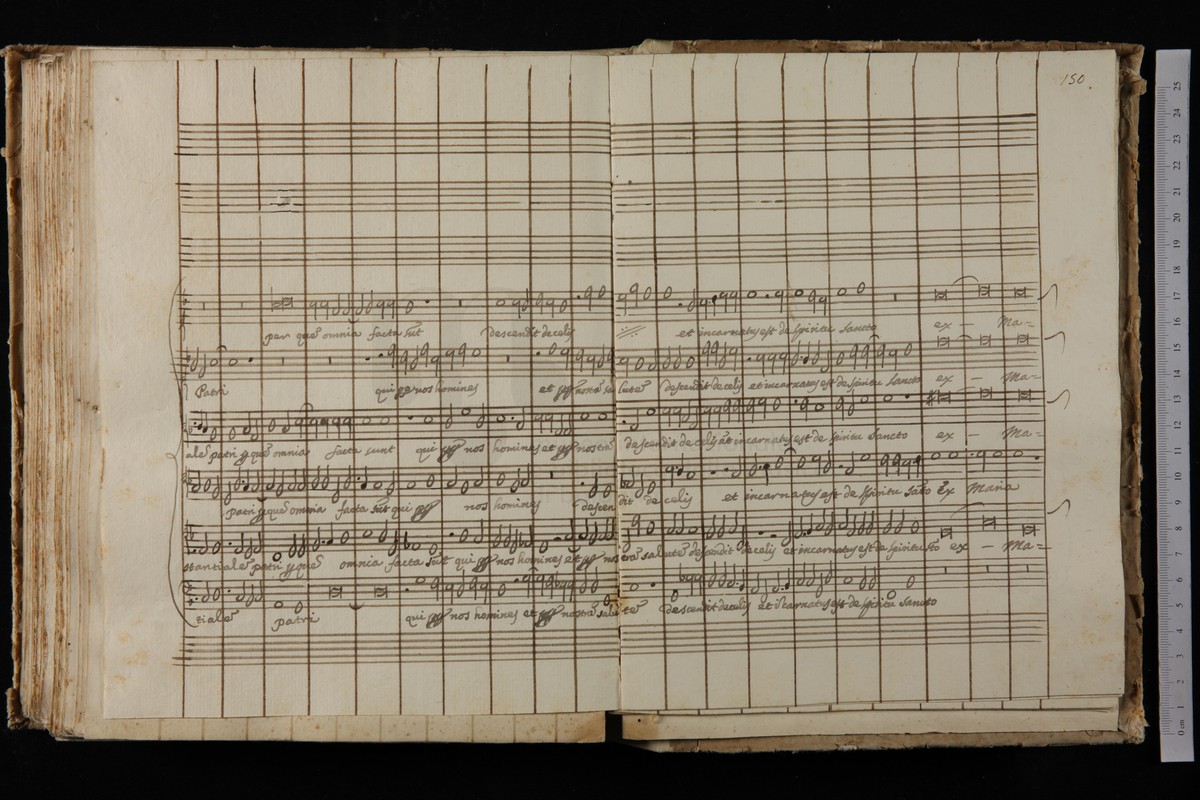 150.
per que omnia facta sut descendit de celis et incarnatus est de spiritu sancto ex - Ma-
Patri qui nos homines et nostra salute descendit de celis et incarnatus est de spiritu sancto ex - Ma-
ale patri que omnia facta sunt qui nos homines et nostra descendit de celis et incarnatus est de spiritu sancto ex - Ma-
patri que omnia facta sut qui nos homines descendit de celis et incarnatus est de spiritu ex Maria
stantiale patri que omnia facta sut qui nos homines et nostra salute descendit de celis et incarnatus est de spiritu sto ex - Ma-
ziale patri qui nos homines et nostra salute descendit de celis et icarnatus est de spiritu sancto